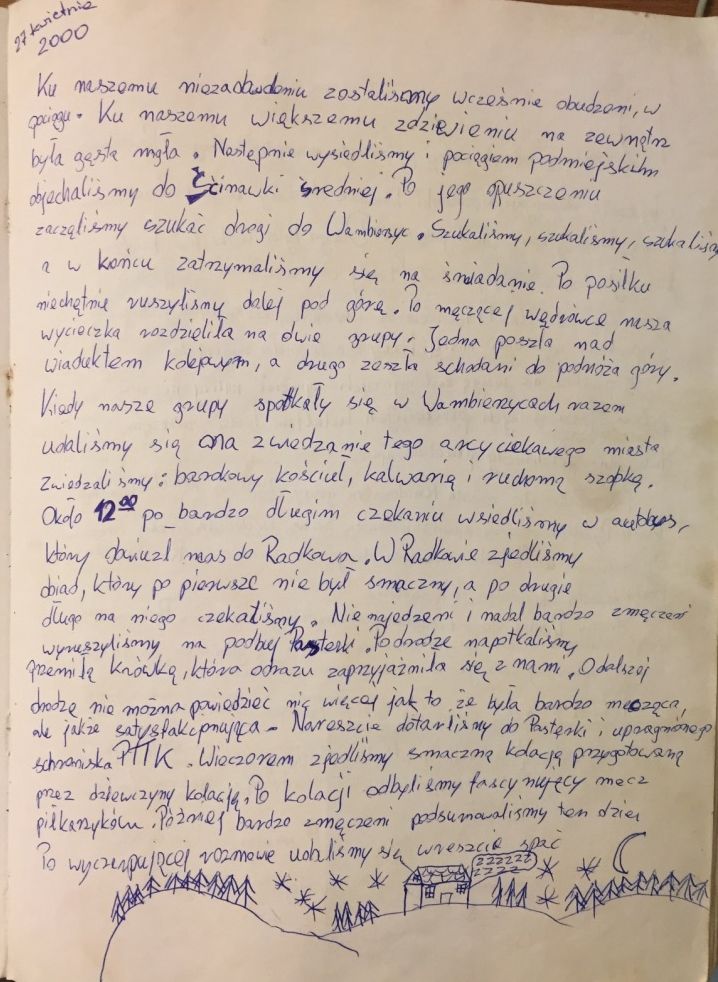 27 kwietnia
2000
Ku naszemu niezadowoleniu zostaliśmy wcześnie obudzeni, w
pociągu. Ku naszemu większemu zdziwieniu na zewnątrz
była gęsta mgła. Następnie wysiedliśmy i pociągiem podmiejskim
dojechaliśmy do Ścinawki Średniej. Po jego opuszczeniu
zaczęliśmy szukać drogi do Wambierzyc. Szukaliśmy, szukaliśmy, szukaliśmy
a w końcu zatrzymaliśmy się na śniadanie. Po posiłku
niechętnie ruszyliśmy dalej pod górę. Po męczącej wędrówce nasza
wycieczka rozdzieliła na dwie grupy. Jedna poszła nad
wiaduktem kolejowym, a druga zeszła schodami do podnóża góry.
Kiedy nasze grupy spotkały się w Wambierzycach razem
udaliśmy się na zwiedzanie tego arcyciekawego miasta
Zwiedzaliśmy: barokowy kościół, kalwarię i ruchomą szopkę.
Około 12⁰⁰ po bardzo długim czekaniu wsiedliśmy w autobus,
który dowiózł nas do Radkowa. W Radkowie zjedliśmy
obiad, który po pierwsze nie był smaczny, a po drugie
długo na niego czekaliśmy. Nie najedzeni i nadal bardzo zmęczeni
wyruszyliśmy na podbój Pasterki. Po drodze napotkaliśmy
przemiłą krówkę, która odrazu zaprzyjaźniła się z nami. O dalszej
drodze nie można powiedzieć nic więcej jak to, że była bardzo męcząca,
ale jakże satysfakcjonująca. Nareszcie dotarliśmy do Pasterki i upragnionego
schroniska PTTK. Wieczorem zjedliśmy smaczną kolację przygotowaną
przez dziewczyny kolację. Po kolacji odbyliśmy fascynujący mecz
piłkarzyków. Później bardzo zmęczeni podsumowaliśmy ten dzień
Po wyczerpującej rozmowie udaliśmy się wreszcie spać
zzzzzz
zzzz